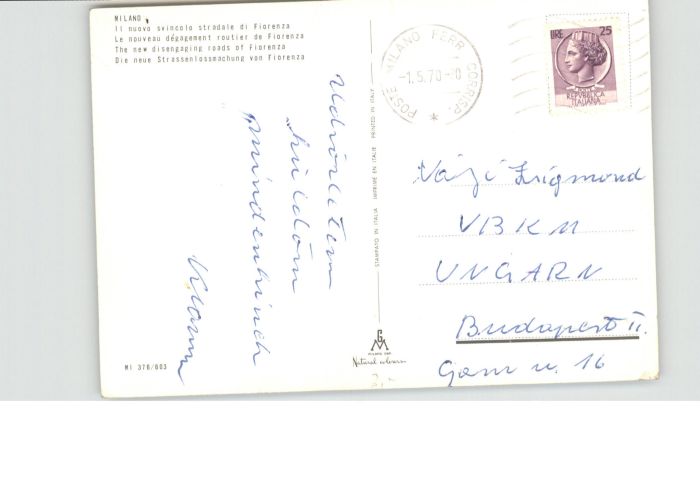 MILANO
Il nuovo svincolo stradale di Fiorenza
Le nouveau dégagement routier de Fiorenza
The new disengaging roads of Fiorenza
Die neue Strassenlossmachung von Fiorenza
Üdvözletem
küldöm
mindenkinek
MI 378/603
STAMPATO IN ITALIA IMPRIMÉ EN ITALIE PRINTED IN ITALY
MILANO
Natural colours
POSTE MILANO FERR CORRISP.
-1.5.70-
LIRE 25
REPVBBLICA
ITALIANA
Zsigmond
VBKM
UNGARN
Budapest II.
u. 16